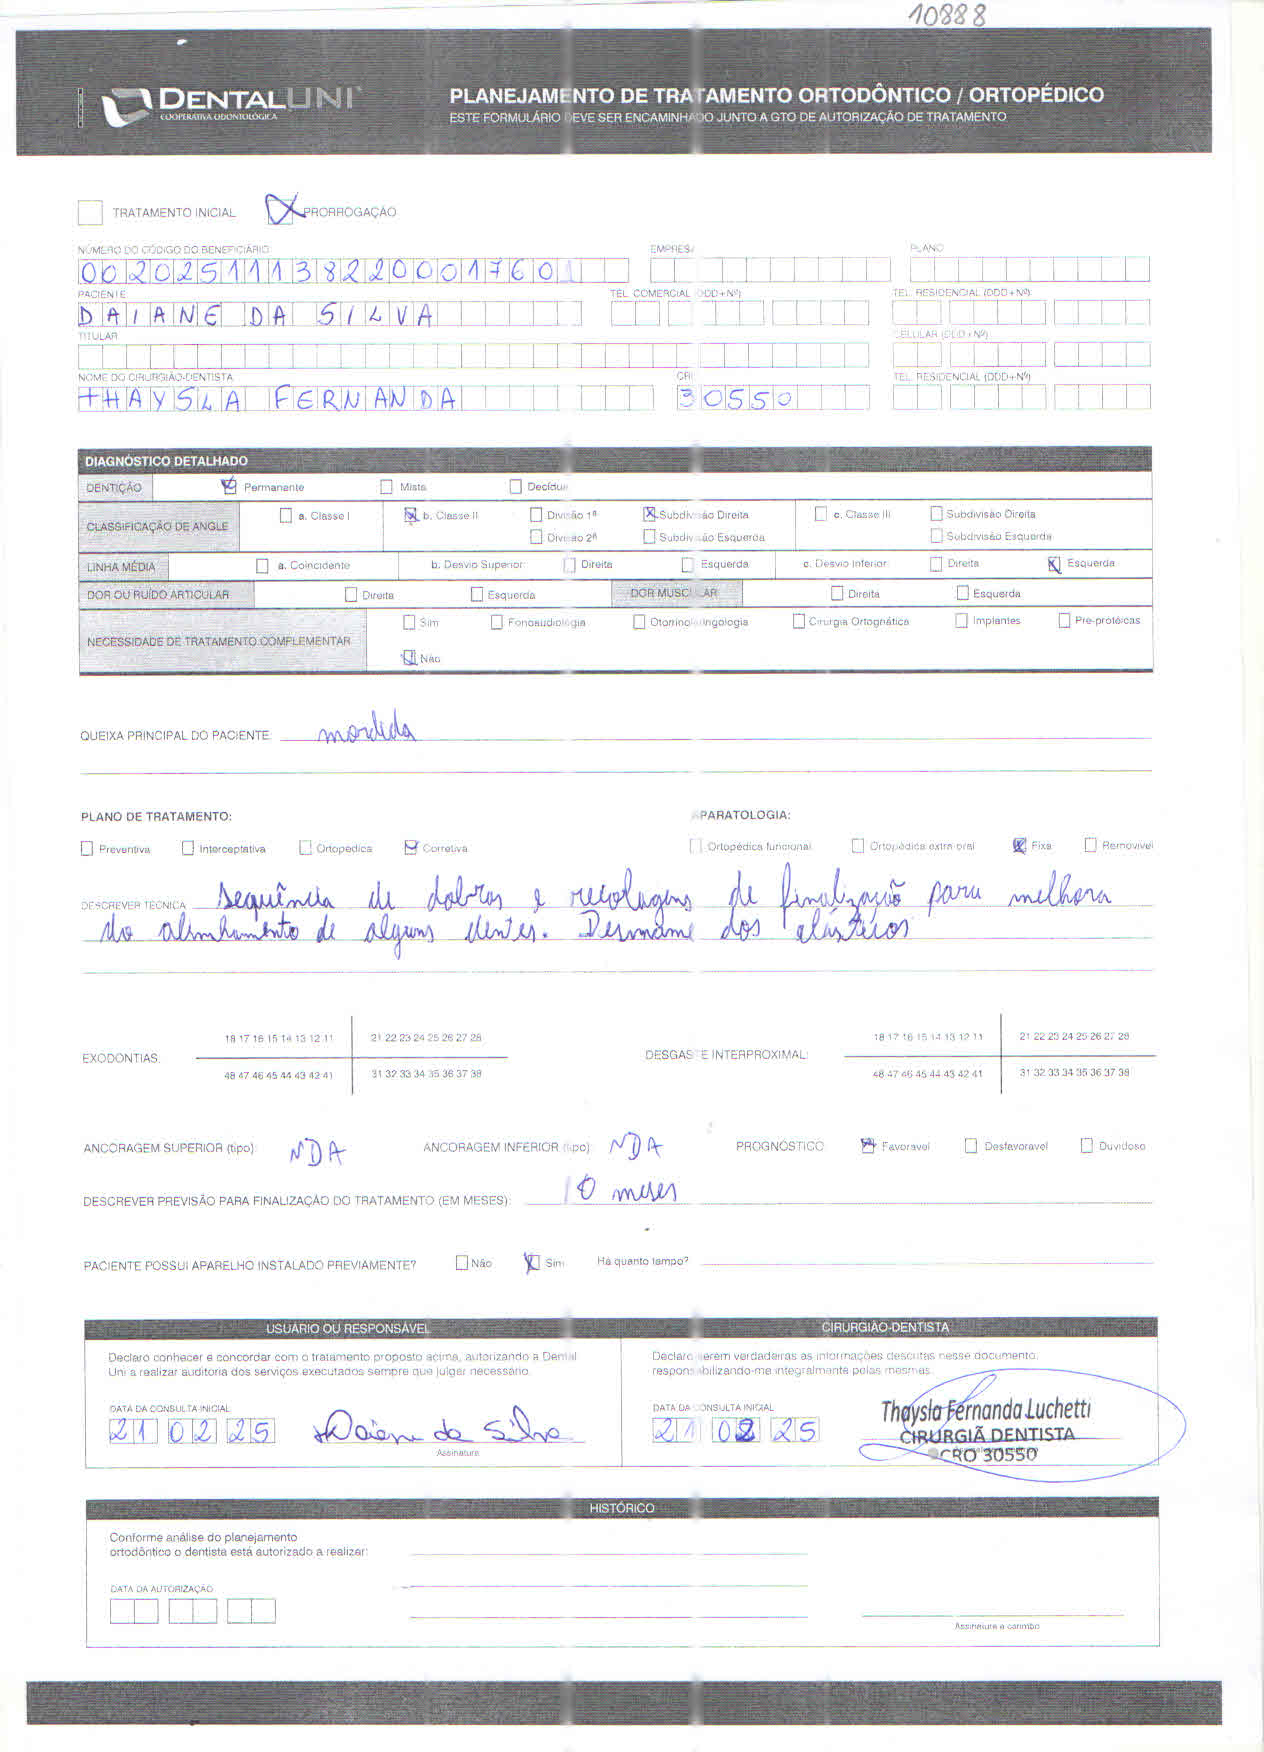 10888
DENTALUNI
COOPERATIVA ODONTOLÓGICA
PLANEJAMENTO DE TRATAMENTO ORTODÔNTICO / ORTOPÉDICO
ESTE FORMULÁRIO DEVE SER ENCAMINHADO JUNTO A GTO DE AUTORIZAÇÃO DE TRATAMENTO
TRATAMENTO INICIAL PRORROGAÇÃO
NÚMERO DO CÓDIGO DO BENEFICIÁRIO EMPRESA PLANO
00202511138220001760
PACIENTE TEL. COMERCIAL (DDD+Nº) TEL. RESIDENCIAL (DDD+Nº)
DAIANE DA SILVA
TITULAR CELULAR (DDD+Nº)
NOME DO CIRURGIÃO-DENTISTA CRO TEL. RESIDENCIAL (DDD+Nº)
THAYSLA FERNANDA 30550
DIAGNÓSTICO DETALHADO
DENTIÇÃO Permanente Mista Decídua
CLASSIFICAÇÃO DE ANGLE a. Classe I b. Classe II Divisão 1ª Subdivisão Direita c. Classe III Subdivisão Direita
Divisão 2ª Subdivisão Esquerda Subdivisão Esquerda
LINHA MÉDIA a. Coincidente b. Desvio Superior: Direita Esquerda c. Desvio Inferior: Direita Esquerda
DOR OU RUÍDO ARTICULAR Direita Esquerda DOR MUSCULAR Direita Esquerda
NECESSIDADE DE TRATAMENTO COMPLEMENTAR Sim Fonoaudiologia Otorrinolaringologia Cirurgia Ortognática Implantes Pré-protéticas
Não
QUEIXA PRINCIPAL DO PACIENTE: mordida
PLANO DE TRATAMENTO: APARATOLOGIA:
Preventiva Interceptativa Ortopédica Corretiva Ortopédica funcional Ortopédica extra oral Fixa Removível
DESCREVER TÉCNICA Sequência de dobras e recolagens de finalização para melhora
do alinhamento de alguns dentes. Desmame dos elásticos
18 17 16 15 14 13 12 11 21 22 23 24 25 26 27 28 18 17 16 15 14 13 12 11 21 22 23 24 25 26 27 28
EXODONTIAS: DESGASTE INTERPROXIMAL:
48 47 46 45 44 43 42 41 31 32 33 34 35 36 37 38 48 47 46 45 44 43 42 41 31 32 33 34 35 36 37 38
ANCORAGEM SUPERIOR (tipo): NDA ANCORAGEM INFERIOR (tipo): NDA PROGNÓSTICO: Favorável Desfavorável Duvidoso
DESCREVER PREVISÃO PARA FINALIZAÇÃO DO TRATAMENTO (EM MESES): 10 meses
PACIENTE POSSUI APARELHO INSTALADO PREVIAMENTE? Não Sim Há quanto tempo?
USUÁRIO OU RESPONSÁVEL CIRURGIÃO-DENTISTA
Declaro conhecer e concordar com o tratamento proposto acima, autorizando a Dental
Uni a realizar auditoria dos serviços executados sempre que julgar necessário.
Declaro serem verdadeiras as informações descritas nesse documento,
responsabilizando-me integralmente pelas mesmas.
DATA DA CONSULTA INICIAL DATA DA CONSULTA INICIAL
21 02 25 Daiane da Silva 21 02 25
Assinatura
Thaysla Fernanda Luchetti
CIRURGIÃ DENTISTA
CRO 30550
HISTÓRICO
Conforme análise do planejamento
ortodôntico o dentista está autorizado a realizar:
DATA DA AUTORIZAÇÃO
Assinatura e carimbo